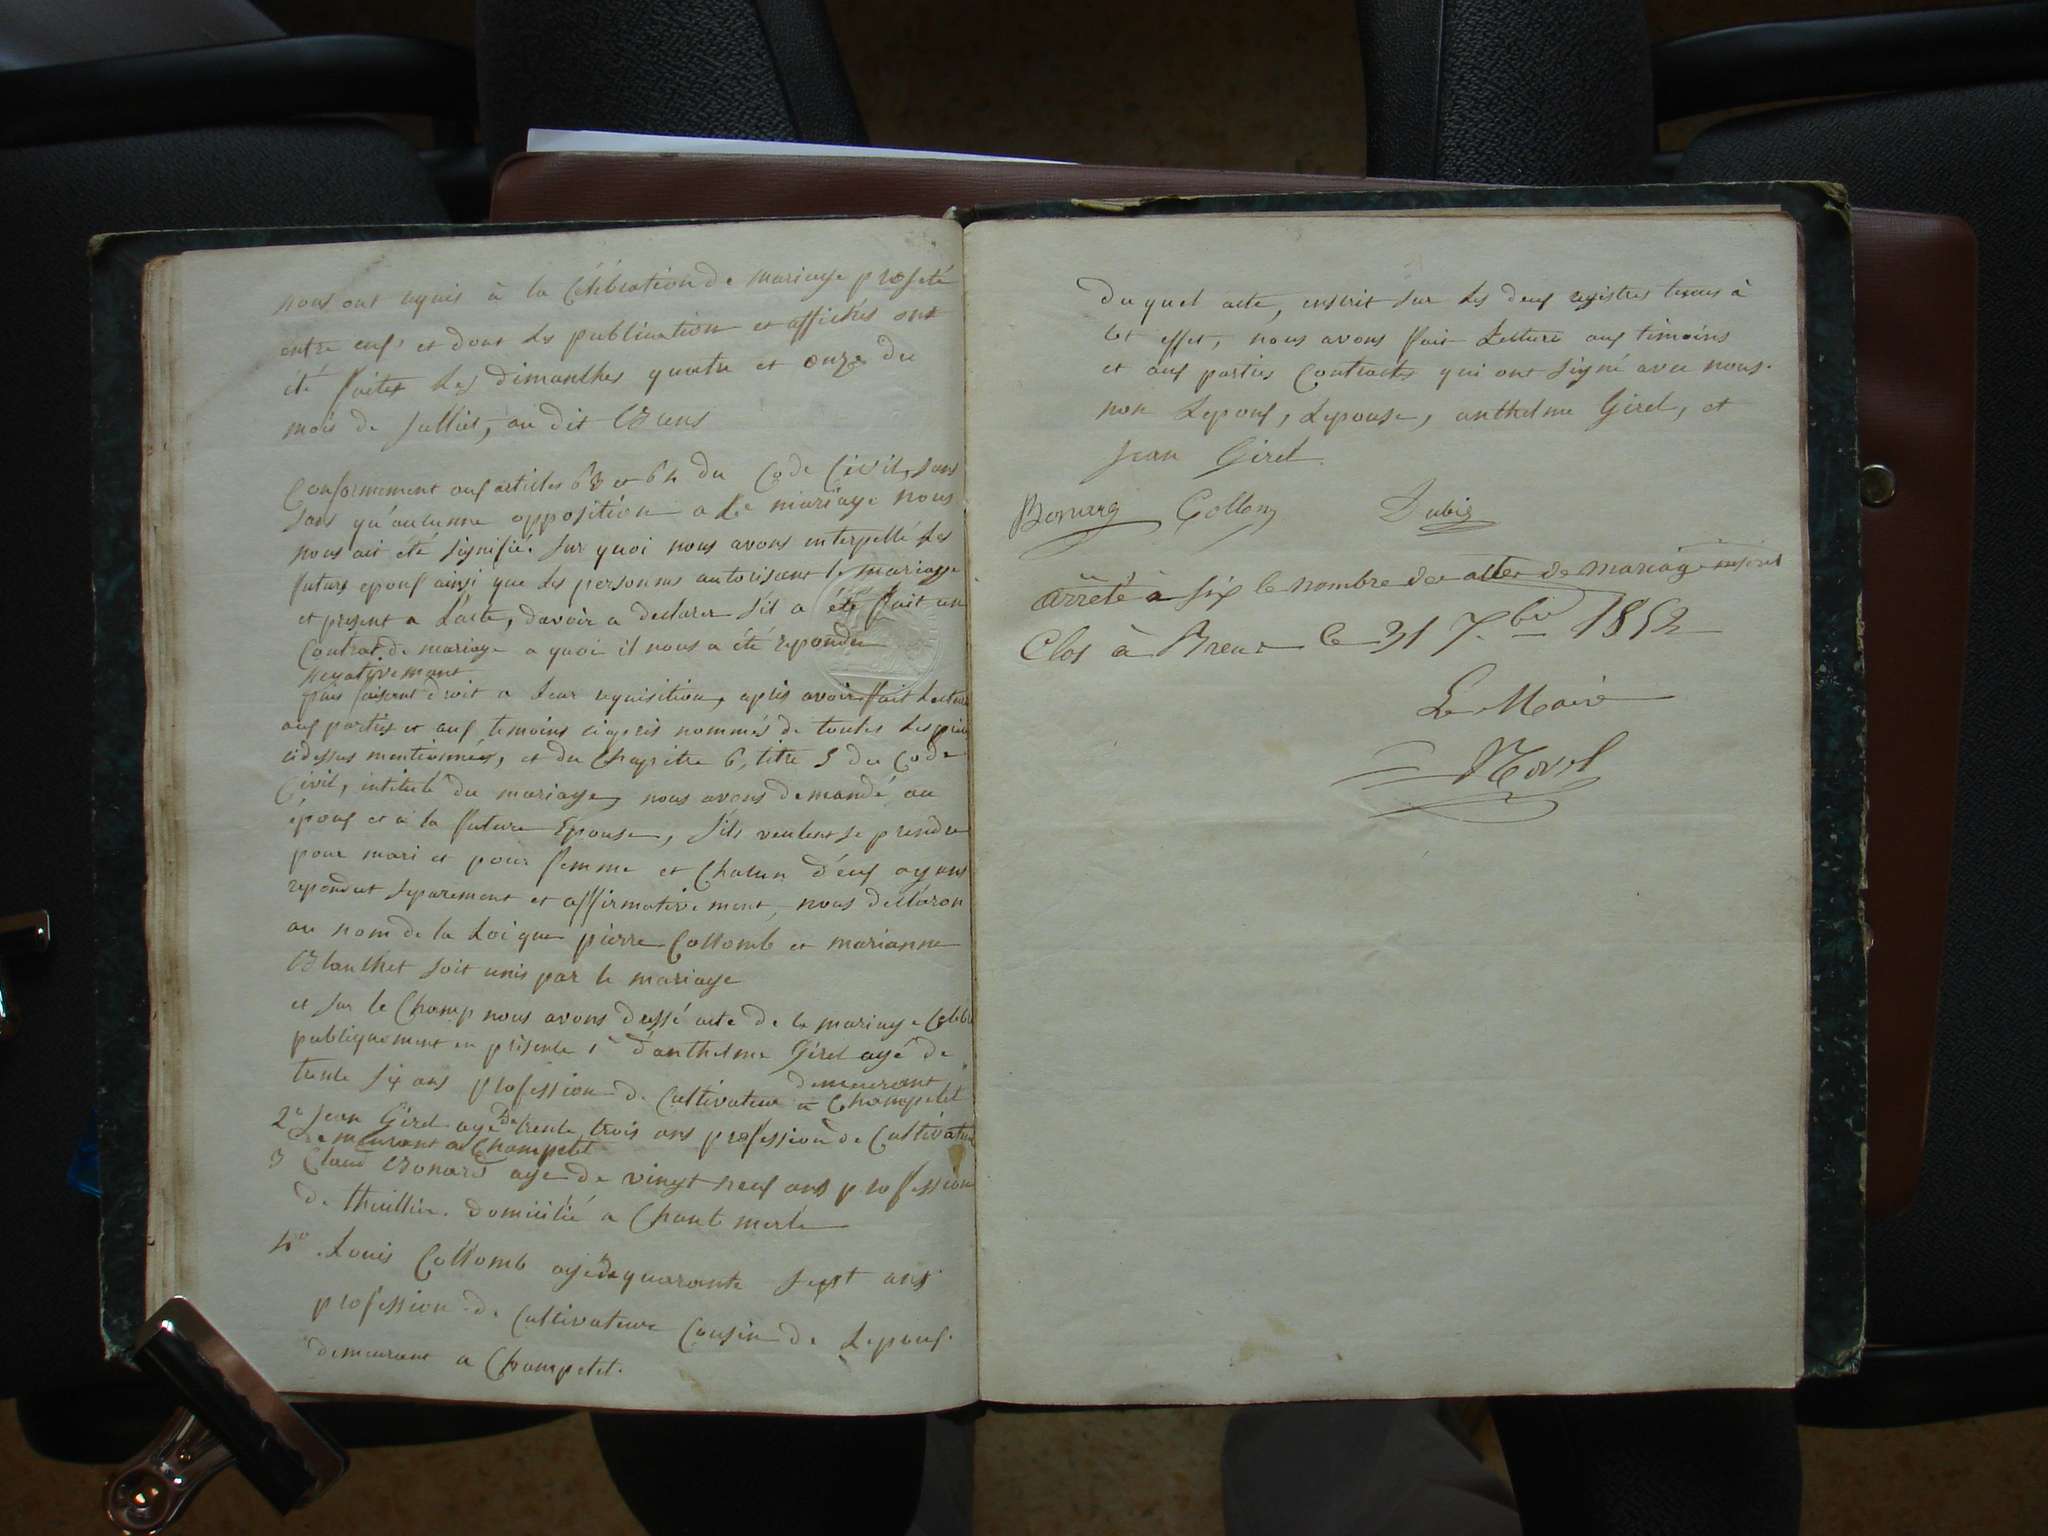 nous ont requis à la Célébration de mariage projeté
entre eux et dont les publication et affiches ont
été faites les dimanches quatre et onze du
mois de Julliet, au dit Brens
Conformement aux articles 63 et 64 du Code Civil, sans
sans qu'aucunne opposition a le mariage nous
nous ait été signifié. sur quoi nous avons interpellé les
futurs epoux ainsi que les personnes autorisant le mariage
et present a l'acte, davoir a declarer s'il a été fait un
Contrat de mariage a quoi il nous a été repondu
negativement
puis faisant droit a leur requisition, après avoir fait lecture
aux parties et aux temoins ciapres nommés de toutes les pièc
cidessus mentionnées, et du Chapitre 6, titre 5 du Code
Civil, intitulé du mariage, nous avons demandé au
époux et à la future Epouse, s'ils veulent se prendre
pour mari et pour femme et Chacun d'eux ayant
repondut separement et affirmativement, nous déclaron
au nom de la Loi que pierre Collomb et marianne
Blanchet soit unis par le mariage
et sur le Champ nous avons dressé acte de le mariage Célébré
publiquement en présence 1° d'anthelme Girel agé de
trente six ans profession de Cultivateur demeurant à Champetel
2° Jean Girel agé de trente trois ans profession de Cultivateur
demeurant a Champetel
3 Claud Bonard age de vingt neuf ans profession
de thuillier. domicilié a Chantemerle
4° Louis Collomb agé de quarante sept ans
profession de Cultivateur Cousin de Lepoux
demeurant a Champetel.
Du quel acte, enscrit sur les deux registres tenus à
Cet effet, nous avons fait Lecture aux timoins
et aux parties Contractes qui ont signé avec nous.
non Lepoux, Lepouse, anthelme Girel, et
Jean Girel.
Bonard Collom Dubis
arrêté à six le nombre des actes de mariage inscrit
Clos à Brens le 31 Xbre 1852
Le Maire